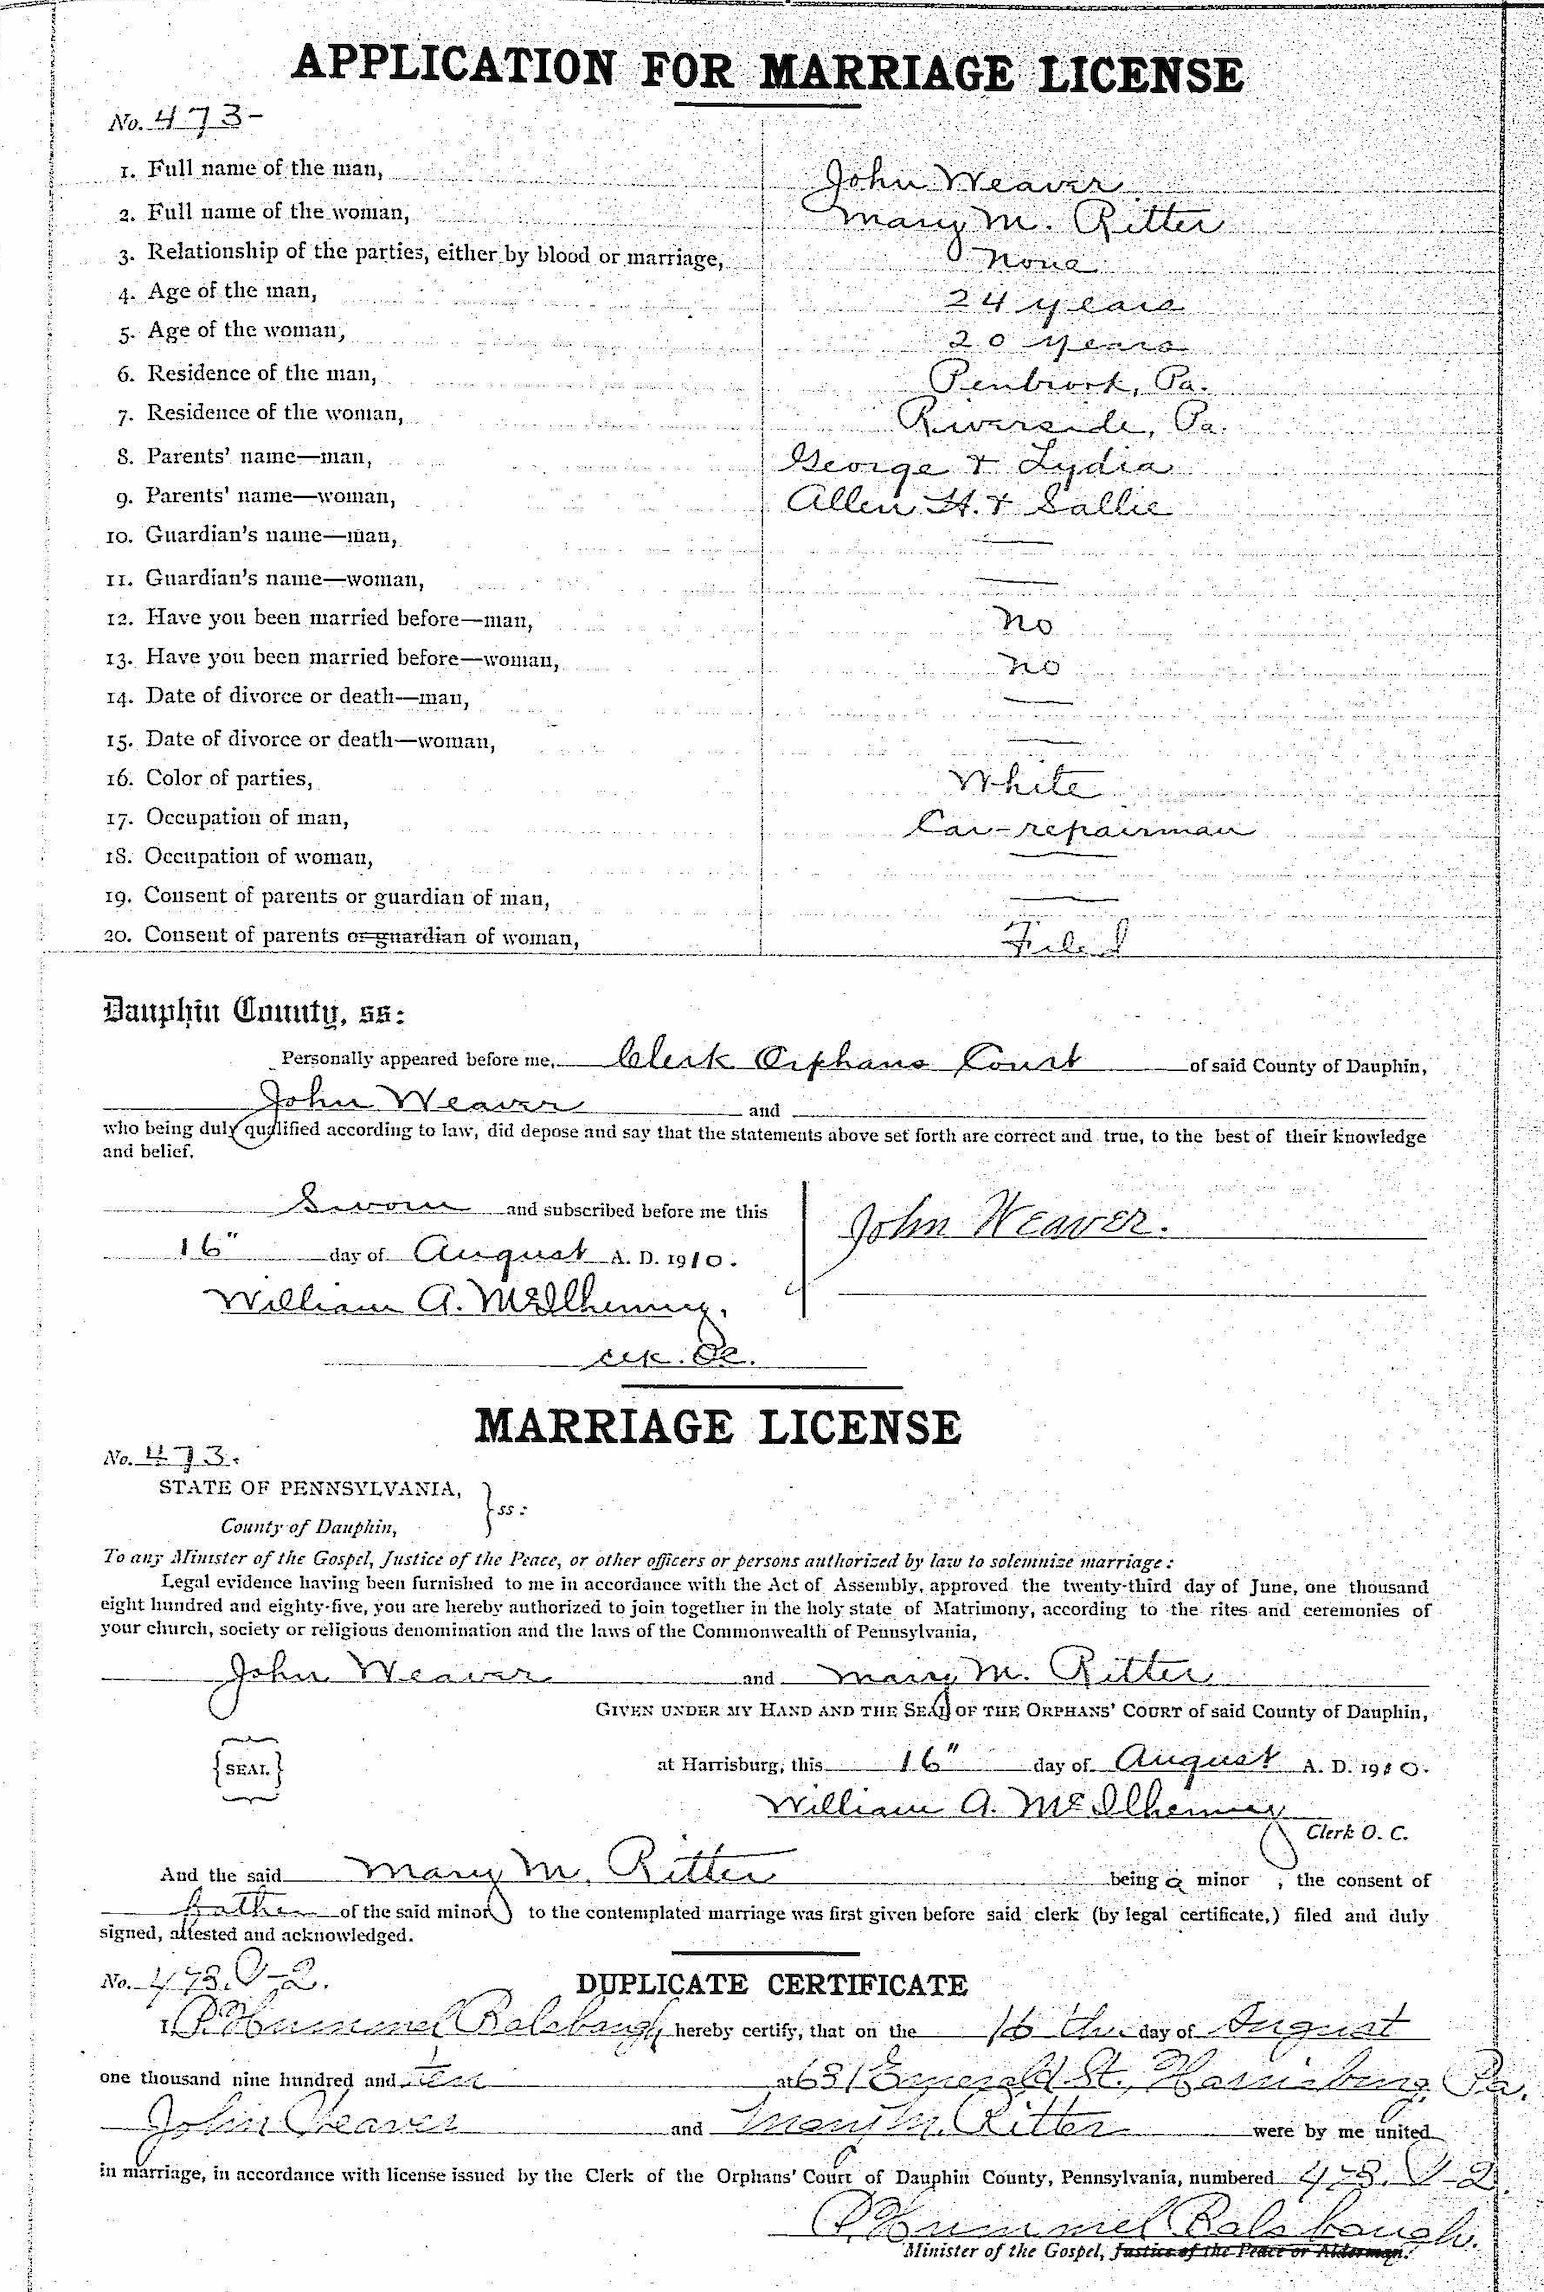 APPLICATION FOR MARRIAGE LICENSE
No. 473-
1. Full name of the man, John Weaver
2. Full name of the woman, Mary M. Ritter
3. Relationship of the parties, either by blood or marriage, None
4. Age of the man, 24 years
5. Age of the woman, 20 years
6. Residence of the man, Penbrook, Pa.
7. Residence of the woman, Riverside, Pa.
8. Parents' name—man, George & Lydia
9. Parents' name—woman, Allen H. & Sallie
10. Guardian's name—man, —
11. Guardian's name—woman, —
12. Have you been married before—man, No
13. Have you been married before—woman, No
14. Date of divorce or death—man, —
15. Date of divorce or death—woman, —
16. Color of parties, White
17. Occupation of man, Car-repairman
18. Occupation of woman, —
19. Consent of parents or guardian of man, —
20. Consent of parents or guardian of woman, Filed
Dauphin County, ss:
Personally appeared before me, Clerk Orphans Court of said County of Dauphin,
John Weaver and
who being duly qualified according to law, did depose and say that the statements above set forth are correct and true, to the best of their knowledge
and belief.
Sworn and subscribed before me this
John Weaver.
16" day of August A. D. 1910.
William A. McIlhenny,
Clk. Oc.
MARRIAGE LICENSE
No. 473.
STATE OF PENNSYLVANIA, } ss:
County of Dauphin,
To any Minister of the Gospel, Justice of the Peace, or other officers or persons authorized by law to solemnize marriage:
Legal evidence having been furnished to me in accordance with the Act of Assembly, approved the twenty-third day of June, one thousand
eight hundred and eighty-five, you are hereby authorized to join together in the holy state of Matrimony, according to the rites and ceremonies of
your church, society or religious denomination and the laws of the Commonwealth of Pennsylvania,
John Weaver and Mary M. Ritter
GIVEN UNDER MY HAND AND THE SEAL OF THE ORPHANS' COURT of said County of Dauphin,
{SEAL} at Harrisburg, this 16" day of August A. D. 1910.
William A. McIlhenny
Clerk O. C.
And the said Mary M. Ritter being a minor , the consent of
father of the said minor to the contemplated marriage was first given before said clerk (by legal certificate,) filed and duly
signed, attested and acknowledged.
No. 473. V-2.
DUPLICATE CERTIFICATE
I, P. Hummel Balsbaugh, hereby certify, that on the 16th. day of August
one thousand nine hundred and ten at 631 Emerald St., Harrisburg, Pa.
John Weaver and Mary M. Ritter were by me united
in marriage, in accordance with license issued by the Clerk of the Orphans' Court of Dauphin County, Pennsylvania, numbered 473. V-2.
P. Hummel Balsbaugh.
Minister of the Gospel, Justice of the Peace or Alderman.